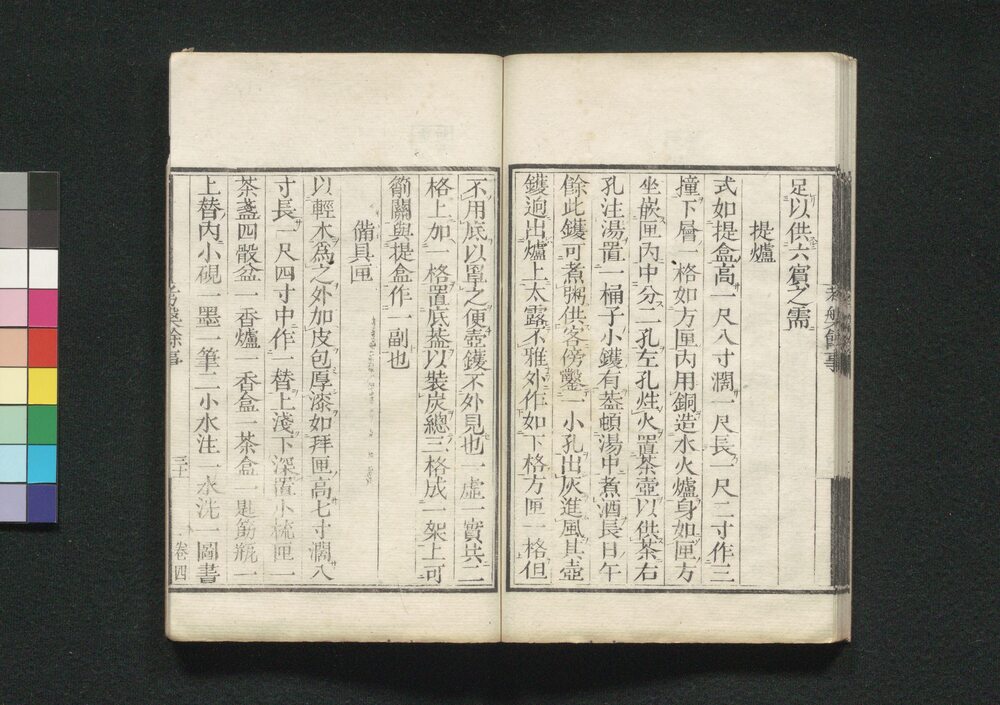 足以供六賓之需
提爐
式如提盒高一尺八寸濶一尺長一尺二寸作三
撞下層一格如方匣内用銅造水火爐身如匣方
坐嵌匣内中分二孔左孔炷火置茶壺以供茶右
孔注湯置一桶子小鑊有葢頓湯中煮酒長日午
餘此鑊可煮粥供客傍鑿一小孔出灰進風其壺
鑊逈出爐上太露不雅外作如下格方匣一格但
不用底以罩之便壺鑊不外見也一虛一實共二
格上加一格置底葢以裝炭總三格成一架上可
箾關與提盒作一副也
備具匣
以輕木爲之外加皮包厚漆如拜匣高七寸濶八
寸長一尺四寸中作一替上淺下深置小梳匣一
茶盞四骰盆一香爐一香盒一茶盒一匙筯瓶一
上替内小硯一墨一筆二小水注一水洗一圖書
考槃餘事
三十
卷四